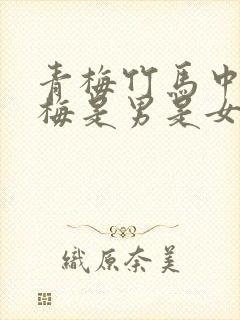 青梅竹馬中
梅是男是女
織原奈美